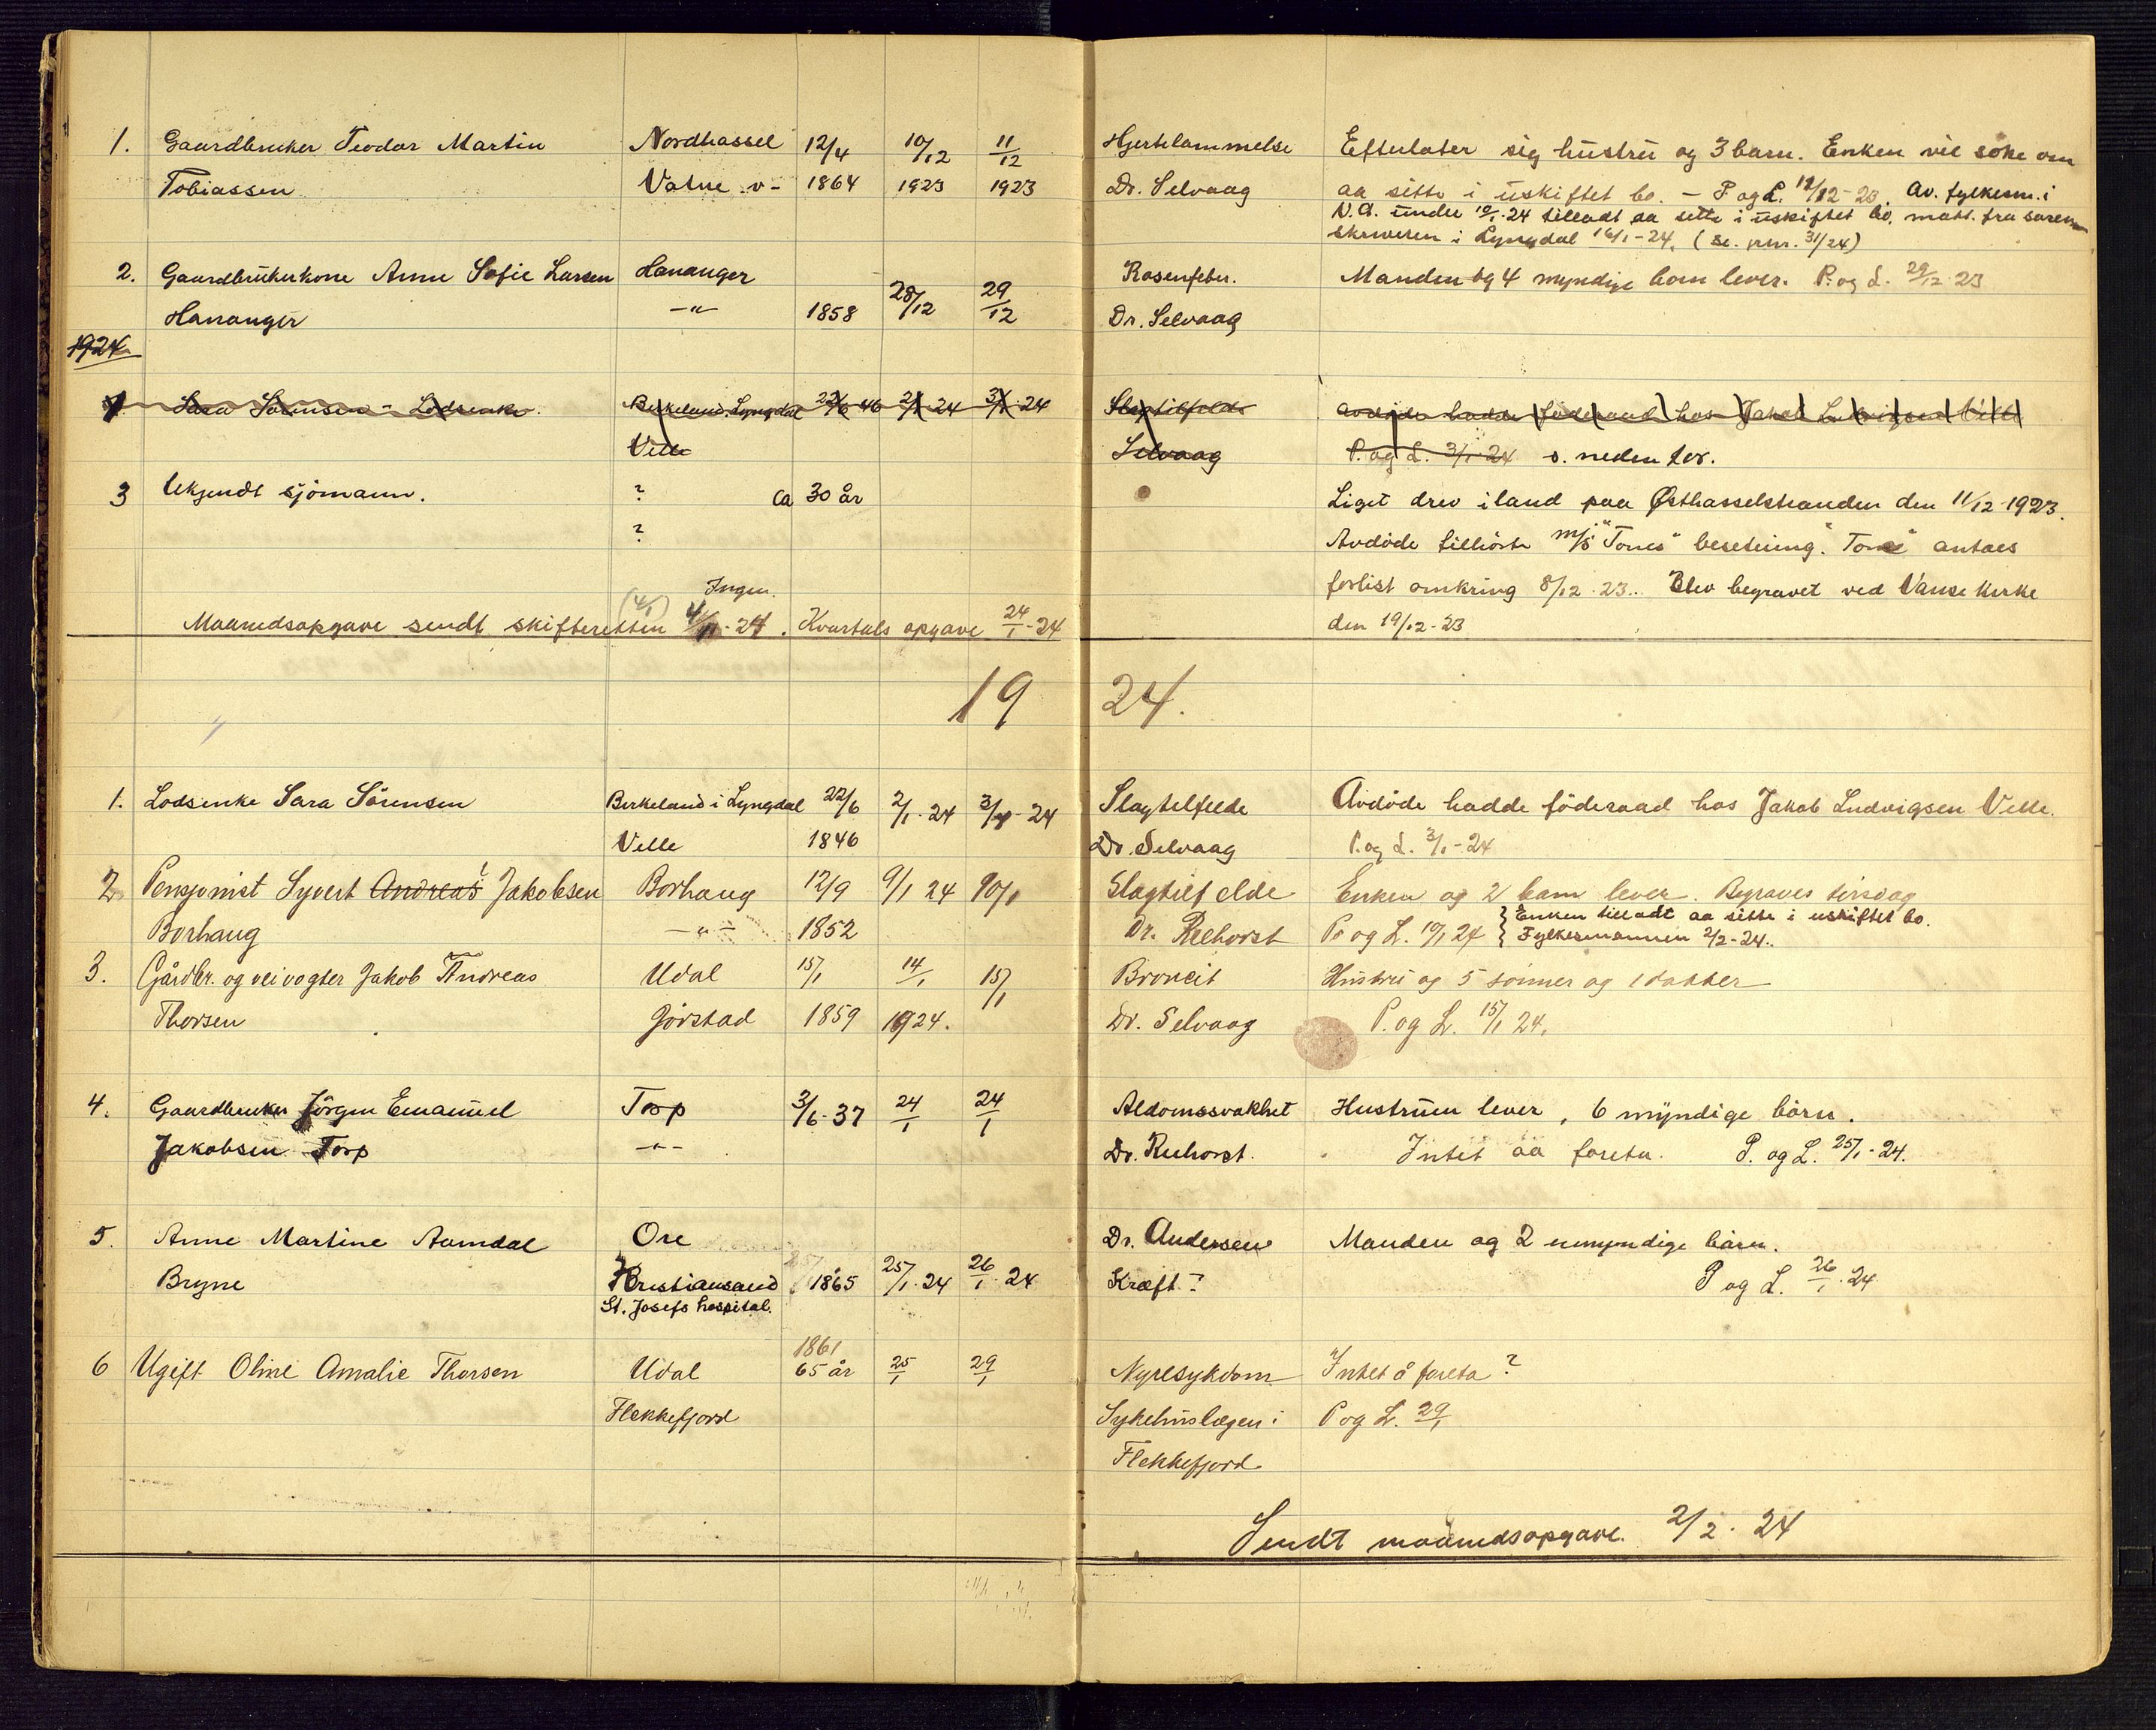 1. Gaardbruker Teodor Martin Nordhassel 12/4 10/12 11/12 Hjertelammelse Efterlater sig hustru og 3 barn. Enken vil søke om
Tobiassen Vatne v- 1864 1923 1923 Dr. Selvaag aa sitte i uskiftet bo. - P. og L. 12/12-23. Av. fylkesm. i
V.A. under 10/1-24 tilladt aa sitte i uskiftet bo, matt. fra soren
skriveren i Lyngdal 16/1-24. (se. jnr. 31/24)
2. Gaardbrukerkone Anne Sofie Larsen Hananger Rosenfeber. Manden og 4 myndige barn lever. P. og L. 29/12-23
Hananger -"- 1858 28/12 29/12 Dr. Selvaag
1924
1 Sara Sørensen - Lodsenke. Birkeland, Lyngdal 22/6 46 2/1 24 3/1-24 Slagtilfelde avdøde hadde føderaad hos Jakob Ludvigsen Velle
Velle Selvaag P. og L. 3/1-24 s. nedenfor.
3 Ukjendt sjømann. ? ca 30 år Liget drev i land paa Østhasselstranden den 11/12-1923.
? Avdøde tilhørte m/s "Tones" besetning. "Tone" antaes
Ingen. forlist omkring 8/12-23.. Blev begravet ved Vanse Kirke
(4/1)
Maanedsopgave sendt skifteretten 4/1-24. Kvartals opgave 24/1-24 den 19/12-23
1924.
1. Lodsenke Sara Sørensen Birkeland i Lyngdal 22/6 2/1-24 3/1-24 Slagtilfelde Avdøde hadde föderaad hos Jakob Ludvigsen Velle.
Velle 1846 Dr. Selvaag P. og L. 3/1-24
2 Pensjonist Syvert Andreas Jakobsen Borhaug 12/9 9/1 24 10/1 Slagtilfelde Enken og 2 barn lever. Begraves tirsdag
Borhaug -"- 1852 Dr. Reehorst P. og L. 10/1 24 } Enken tilladt aa sitte i uskiftet bo.
Fylkesmannen 2/2-24..
3. Gårdbr. og veivogter Jakob Andreas Udal 15/1 14/1 15/1 Broncit Hustru og 5 sønner og 1 datter
Thorsen Jørstad 1859 1924. Dr. Selvaag P. og L. 15/1 24.
4. Gaardbruker Jörgen Emanuel Torp 3/6-37 24/1 24/1 Aldomssvakhet Hustruen lever, 6 myndige börn.
Jakobsen Torp -"- Dr. Reehorst. Intet aa foreta. P. og L. 25/1-24.
5. Anne Martine Aamdal Ore Dr. Andersen Manden og 2 unmyndige börn.
Bryne Kristiansand 1865 25/1-24 26/1-24 Kræft? P og L. 26/1-24
St. Josefs hospital.
1861
6 Ugift Oline Amalie Thorsen Udal 65 år 25/1 29/1 Nyresykdom Intet å foreta?
Flekkefjord Sykehuslægen i P og L. 29/1
Flekkefjord
Sendt maanedsopgave. 2/2-24